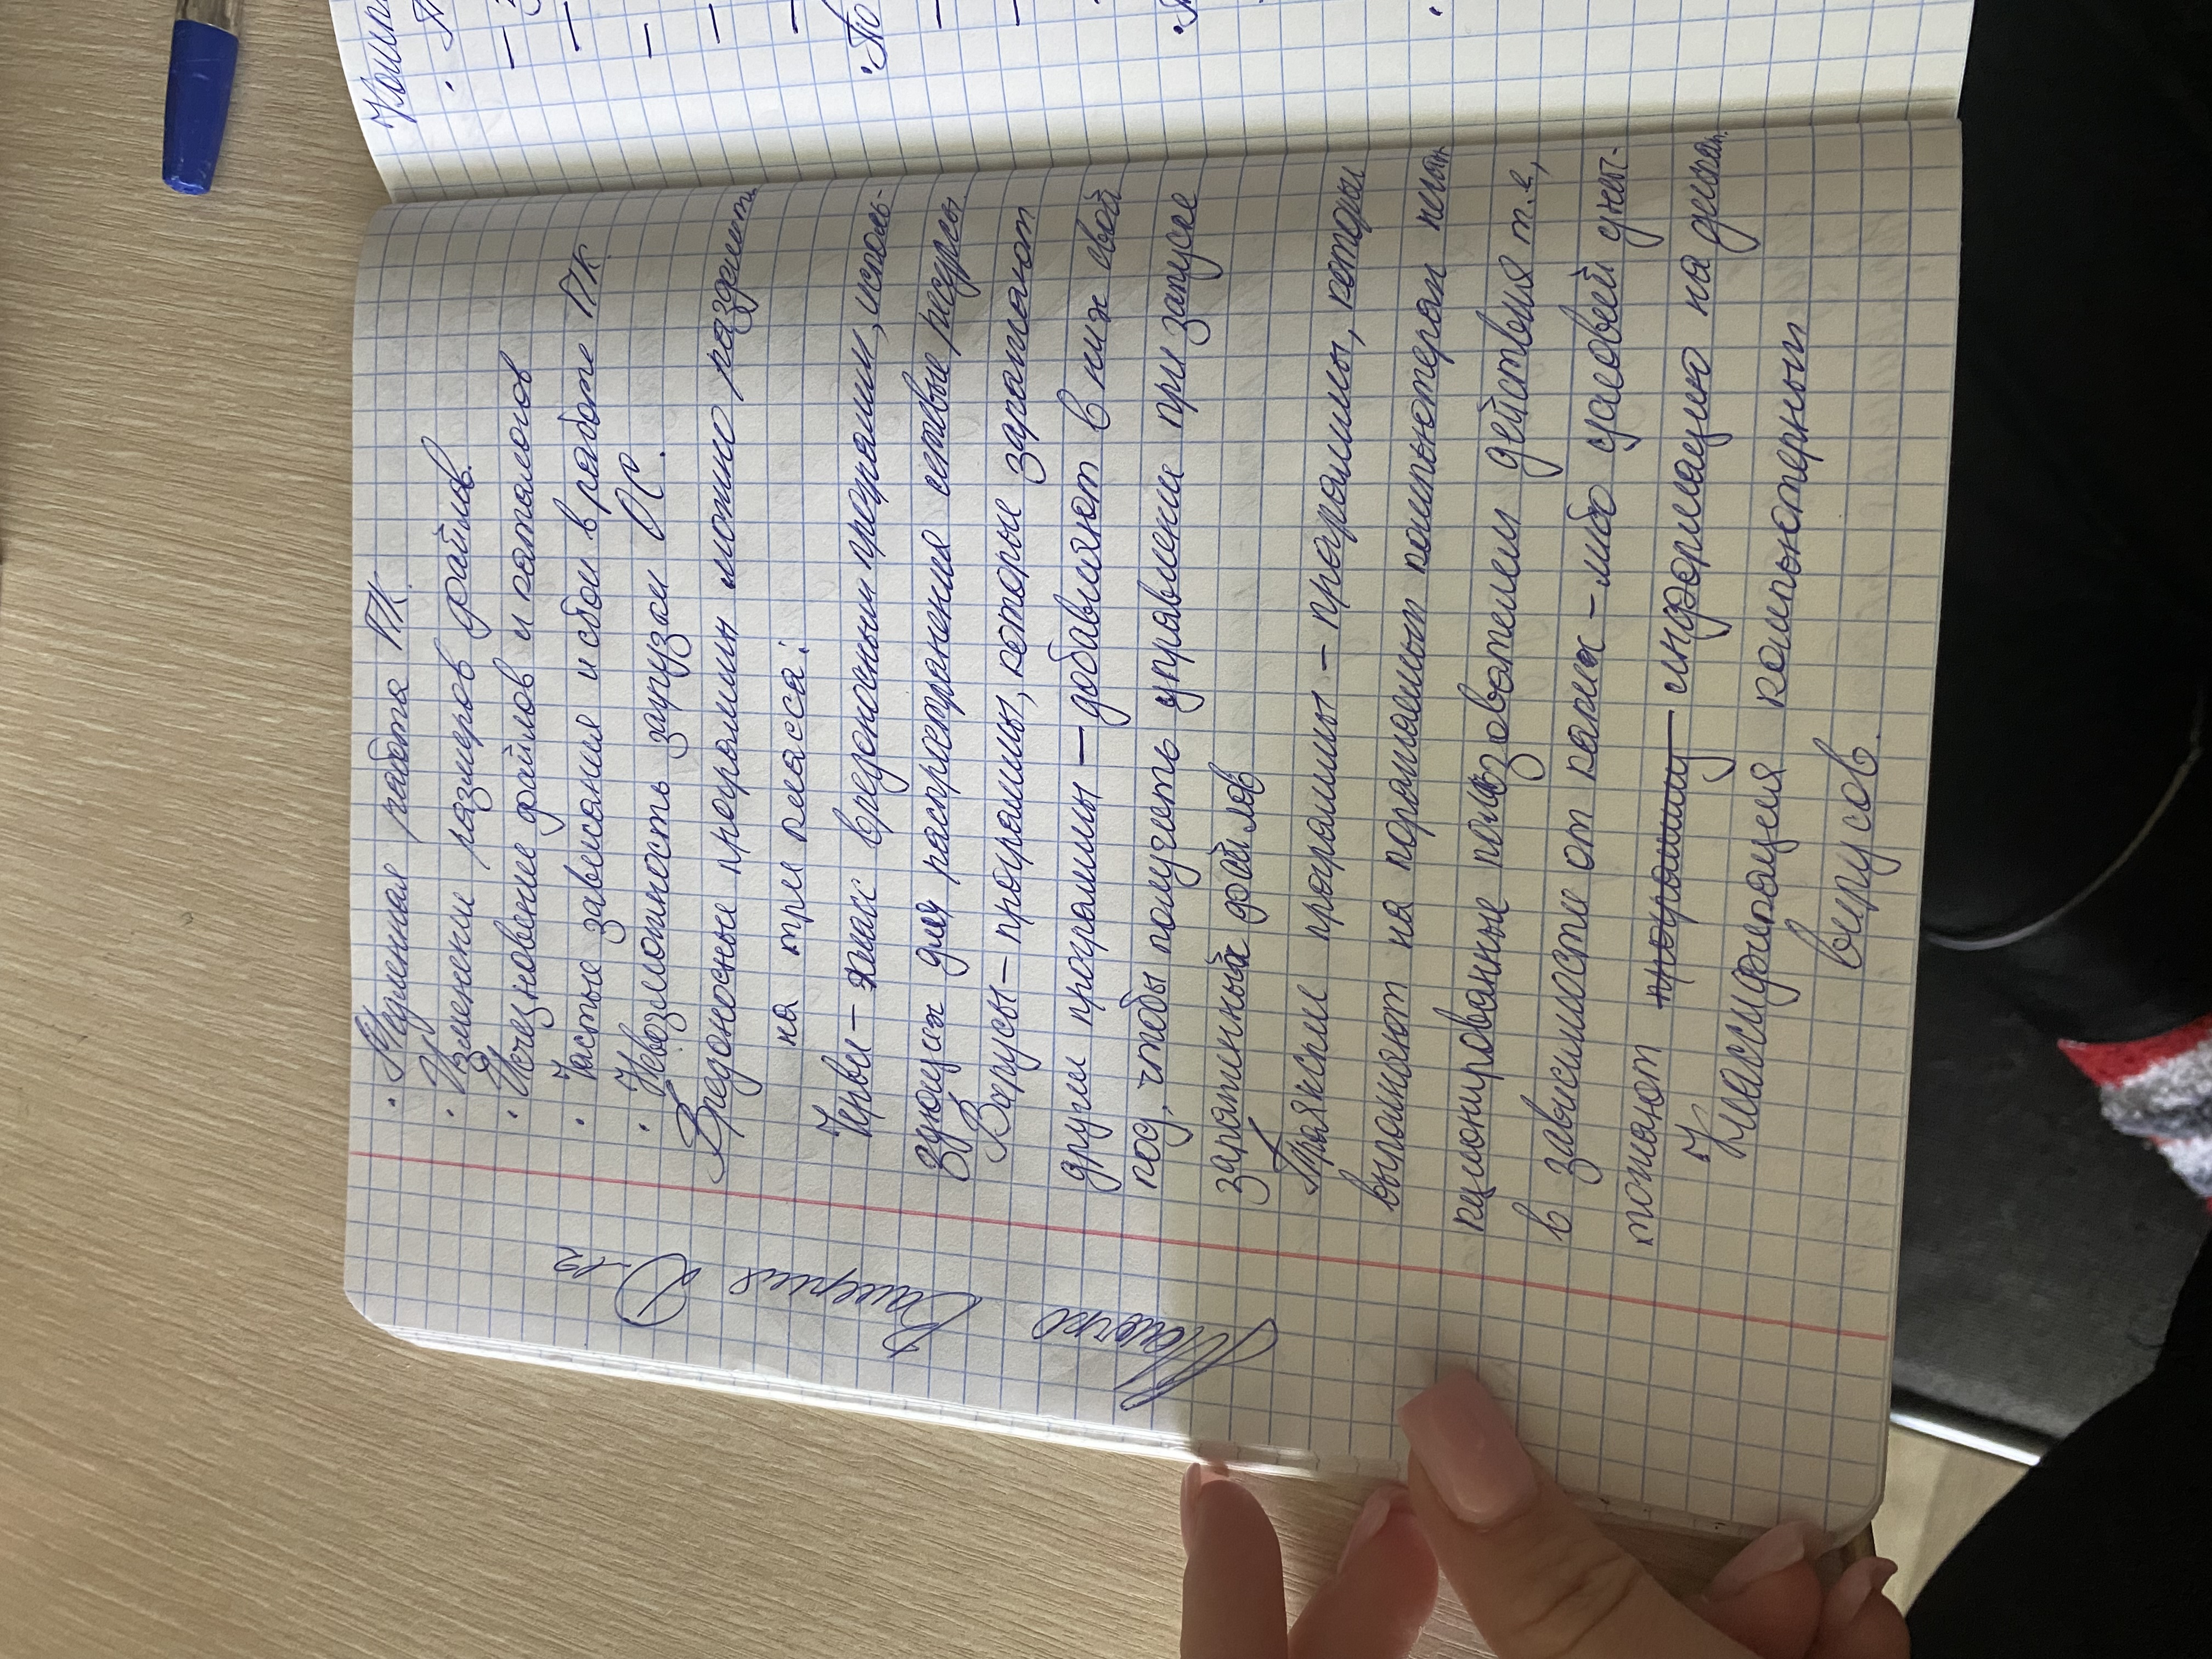 • Медленная работа ПК.
• Изменении размеров файлов.
• Исчезновение файлов и каталогов
• Частые зависания и сбои в работе ПК.
• Невозможность загрузки ОС.
Вредоносные программы можно разделить
на три класса:
Черви – класс вредоносными программи, исполь-
зующих для распространения сетевые ресурсы
Вирусы – программы, которые заражают
други программы – добавляют в них свой
код, чтобы получить управлении при запуске
зараженных файлов
Троянские программы – программы, которы
выполняют на поражаемых компьютерах
кционированные пользователем действия т.е,
в зависимости от каких-либо условий уни-
тожают программу информацию на дисках.
Классификация компьютерных
вирусов.
Валерия
Комп
• По